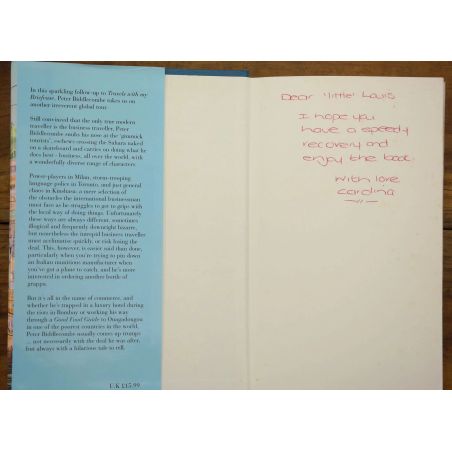 In this sparkling follow-up to Travels with my
Briefcase, Peter Biddlecombe takes us on
another irreverent global tour.
Still convinced that the only true modern
traveller is the business traveller, Peter
Biddlecombe snubs his nose at the 'gimmick
tourists', eschews crossing the Sahara naked
on a skateboard and carries on doing what he
does best – business, all over the world, with
a wonderfully diverse range of characters.
Power-players in Milan, storm-trooping
language police in Toronto, and just general
chaos in Kinshasa: a mere selection of
the obstacles the international businessman
must face as he struggles to get to grips with
the local way of doing things. Unfortunately
these ways are always different, sometimes
illogical and frequently downright bizarre,
but nonetheless the intrepid business traveller
must acclimatise quickly, or risk losing the
deal. This, however, is easier said than done,
particularly when you're trying to pin down
an Italian munitions manufacturer when
you've got a plane to catch, and he's more
interested in ordering another bottle of
grappa.
But it's all in the name of commerce, and
whether he's trapped in a luxury hotel during
the riots in Bombay or working his way
through a Good Food Guide to Ouagadougou
in one of the poorest countries in the world,
Peter Biddlecombe usually comes up trumps
... not necessarily with the deal he was after,
but always with a hilarious tale to tell.
U.K £15.99
Dear 'little' Louis
I hope you
have a speedy
recovery and
enjoy the book.
With love
Carolina